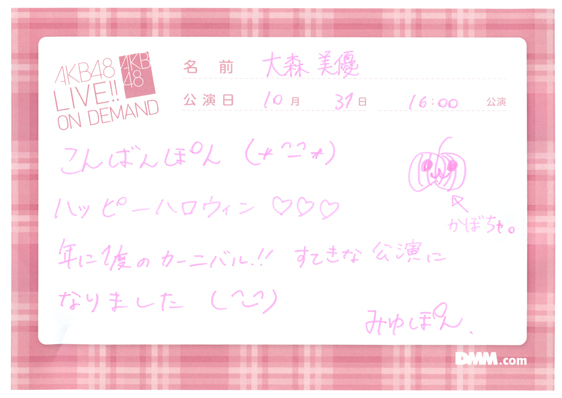 AKB48
LIVE!!
ON DEMAND
AKB
48
名前 大森美優
公演日 10月 31日 16:00 公演
こんばんぽん (*^-^*)
ハッピーハロウィン ♡♡♡
かぼちゃ。
年に1度のカーニバル!! すてきな公演に
なりました (^-^)
みゆぽん、
DMM.com